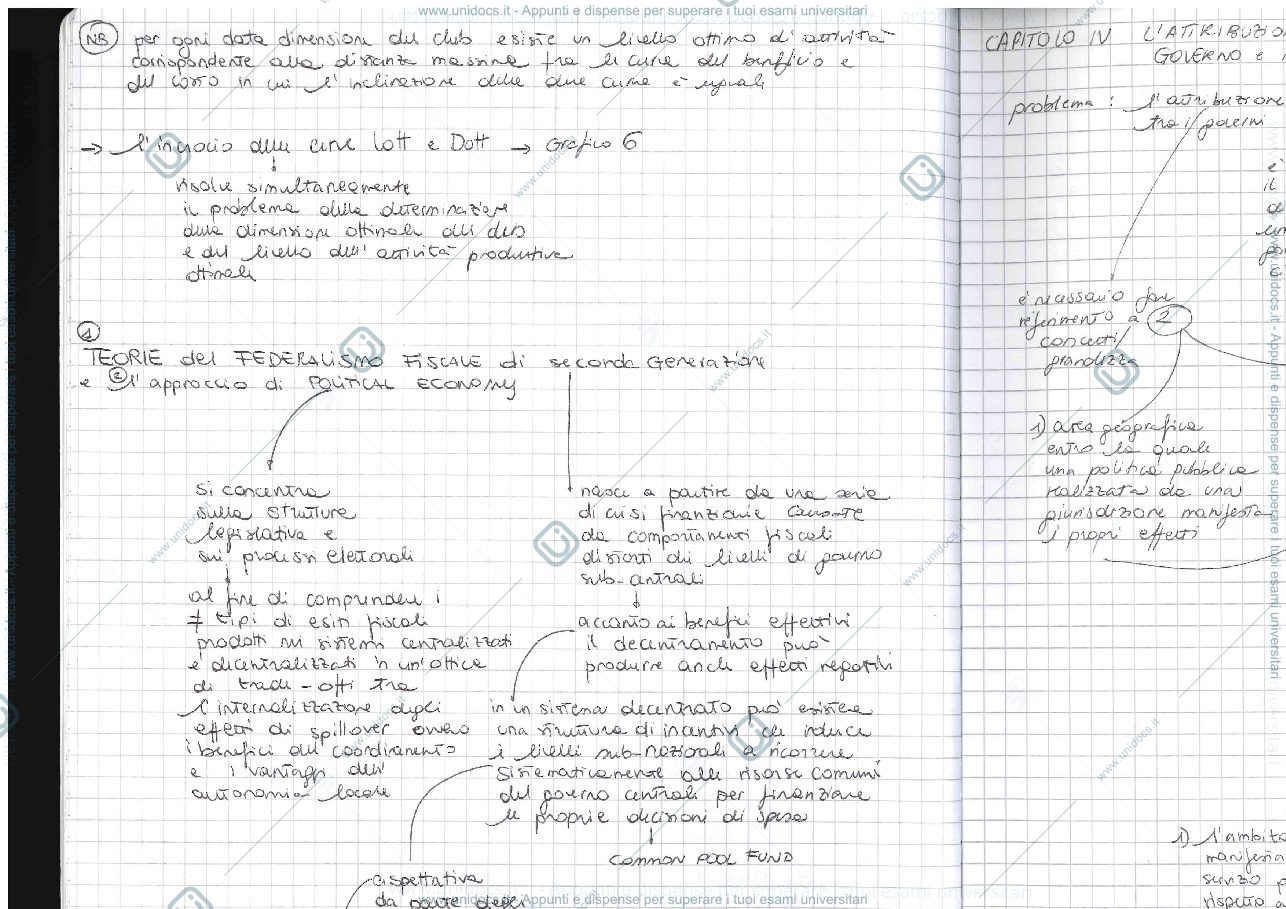 www.unidocs.it - Appunti e dispense per superare i tuoi esami universitari
NB per ogni data dimensione del club esiste un livello ottimo di attività
corrispondente alla distanza massima fra le curve del beneficio e
del costo in cui l'inclinazione delle due curve è uguale
→ l'incrocio delle curve Cott e Dott → Grafico 6
risolve simultaneamente
il problema della determinazione
della dimensione ottimale del club
e del livello dell'attività produttiva
ottimale
1
TEORIE del FEDERALISMO FISCALE di seconda Generazione
e 2 l'approccio di POLITICAL ECONOMY
si concentra
sulla struttura
legislativa e
sui processi elettorali
al fine di comprendere i
≠ tipi di esiti fiscali
prodotti nei sistemi centralizzati
e decentralizzati in un'ottica
di trade-off tra
l'internalizzazione degli
effetti di spillover ovvero
i benefici del coordinamento
e i vantaggi dell'
autonomia locale
nasce a partire da una serie
di crisi finanziarie causate
da comportamenti fiscali
distorti dei livelli di governo
sub-centrali
accanto ai benefici effettivi
il decentramento può
produrre anche effetti negativi
in un sistema decentrato può esistere
una struttura di incentivi che induce
i livelli sub-nazionali a ricorrere
sistematicamente alle risorse comuni
del governo centrale per finanziare
le proprie decisioni di spesa
COMMON POOL FUND
aspettativa
da parte degli
www.unidocs.it - Appunti e dispense per superare i tuoi esami universitari
CAPITOLO IV L'ATTRIBUZIO
GOVERNO e
problema : l'attribuzione
tra i governi
è
il
è necessario fare
riferimento a 2
concetti/
grandezze
1) area geografica
entro la quale
una politica pubblica
realizzata da una
giurisdizione manifesta
i propri effetti
1) l'ambito
manifesta
servizio p
rispetto a
www.unidocs.it - Appunti e dispense per superare i tuoi esami universitari